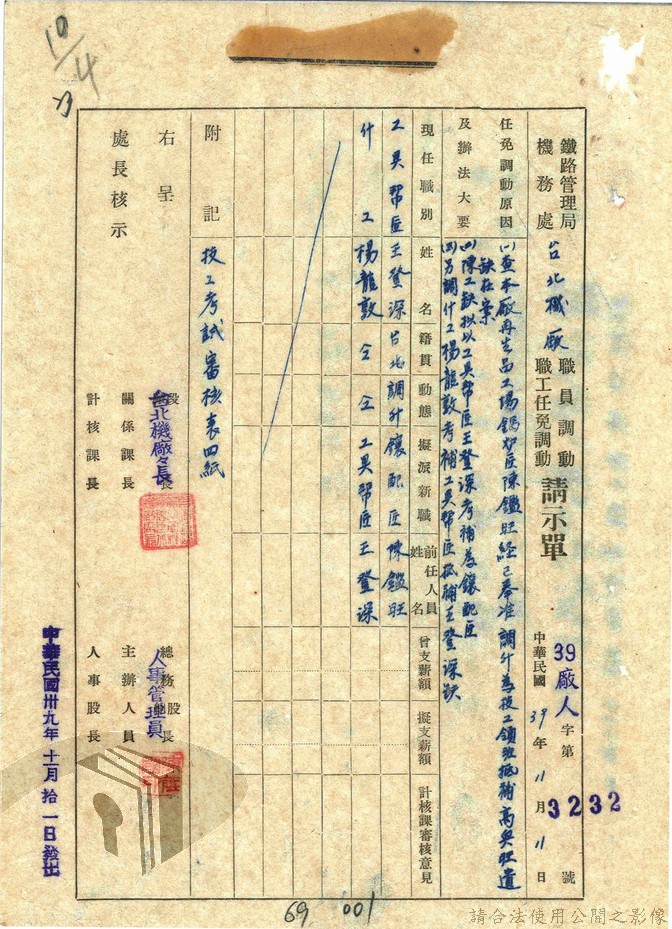 鐵路管理局
機務處
台北機廠
職員調動
職工任免調動
請示單
39廠人字第3232號
中華民國39年11月11日
任免調動原因
及辦法大要
(一)查本廠再生品工場鍋炉匠陳鑑旺経已奉准調升為技工領班抵補高吳旺遺
缺在案
(二)陳工缺拟以工具幇匠王登深考補為鑲配匠
(三)另調什工楊龍敦考補工具幇匠抵補王登深缺
現任職別
姓名
籍貫
動態
擬派新職
前任人員姓名
曾支薪額
擬支薪額
計核課審核意見
工具幇匠王登深台北調升鑲配匠陳鑑旺
什工楊龍敦仝仝工具幇匠王登深
附記
技工考試審核表四紙
右呈
處長核示
段長
台北機廠々長
關係課長
計核課長
總務股長
人事管理員
主辦人員
人事股長
中華民國卅九年十一月拾一日發出
10/4
69
001
請合法使用公開之影像